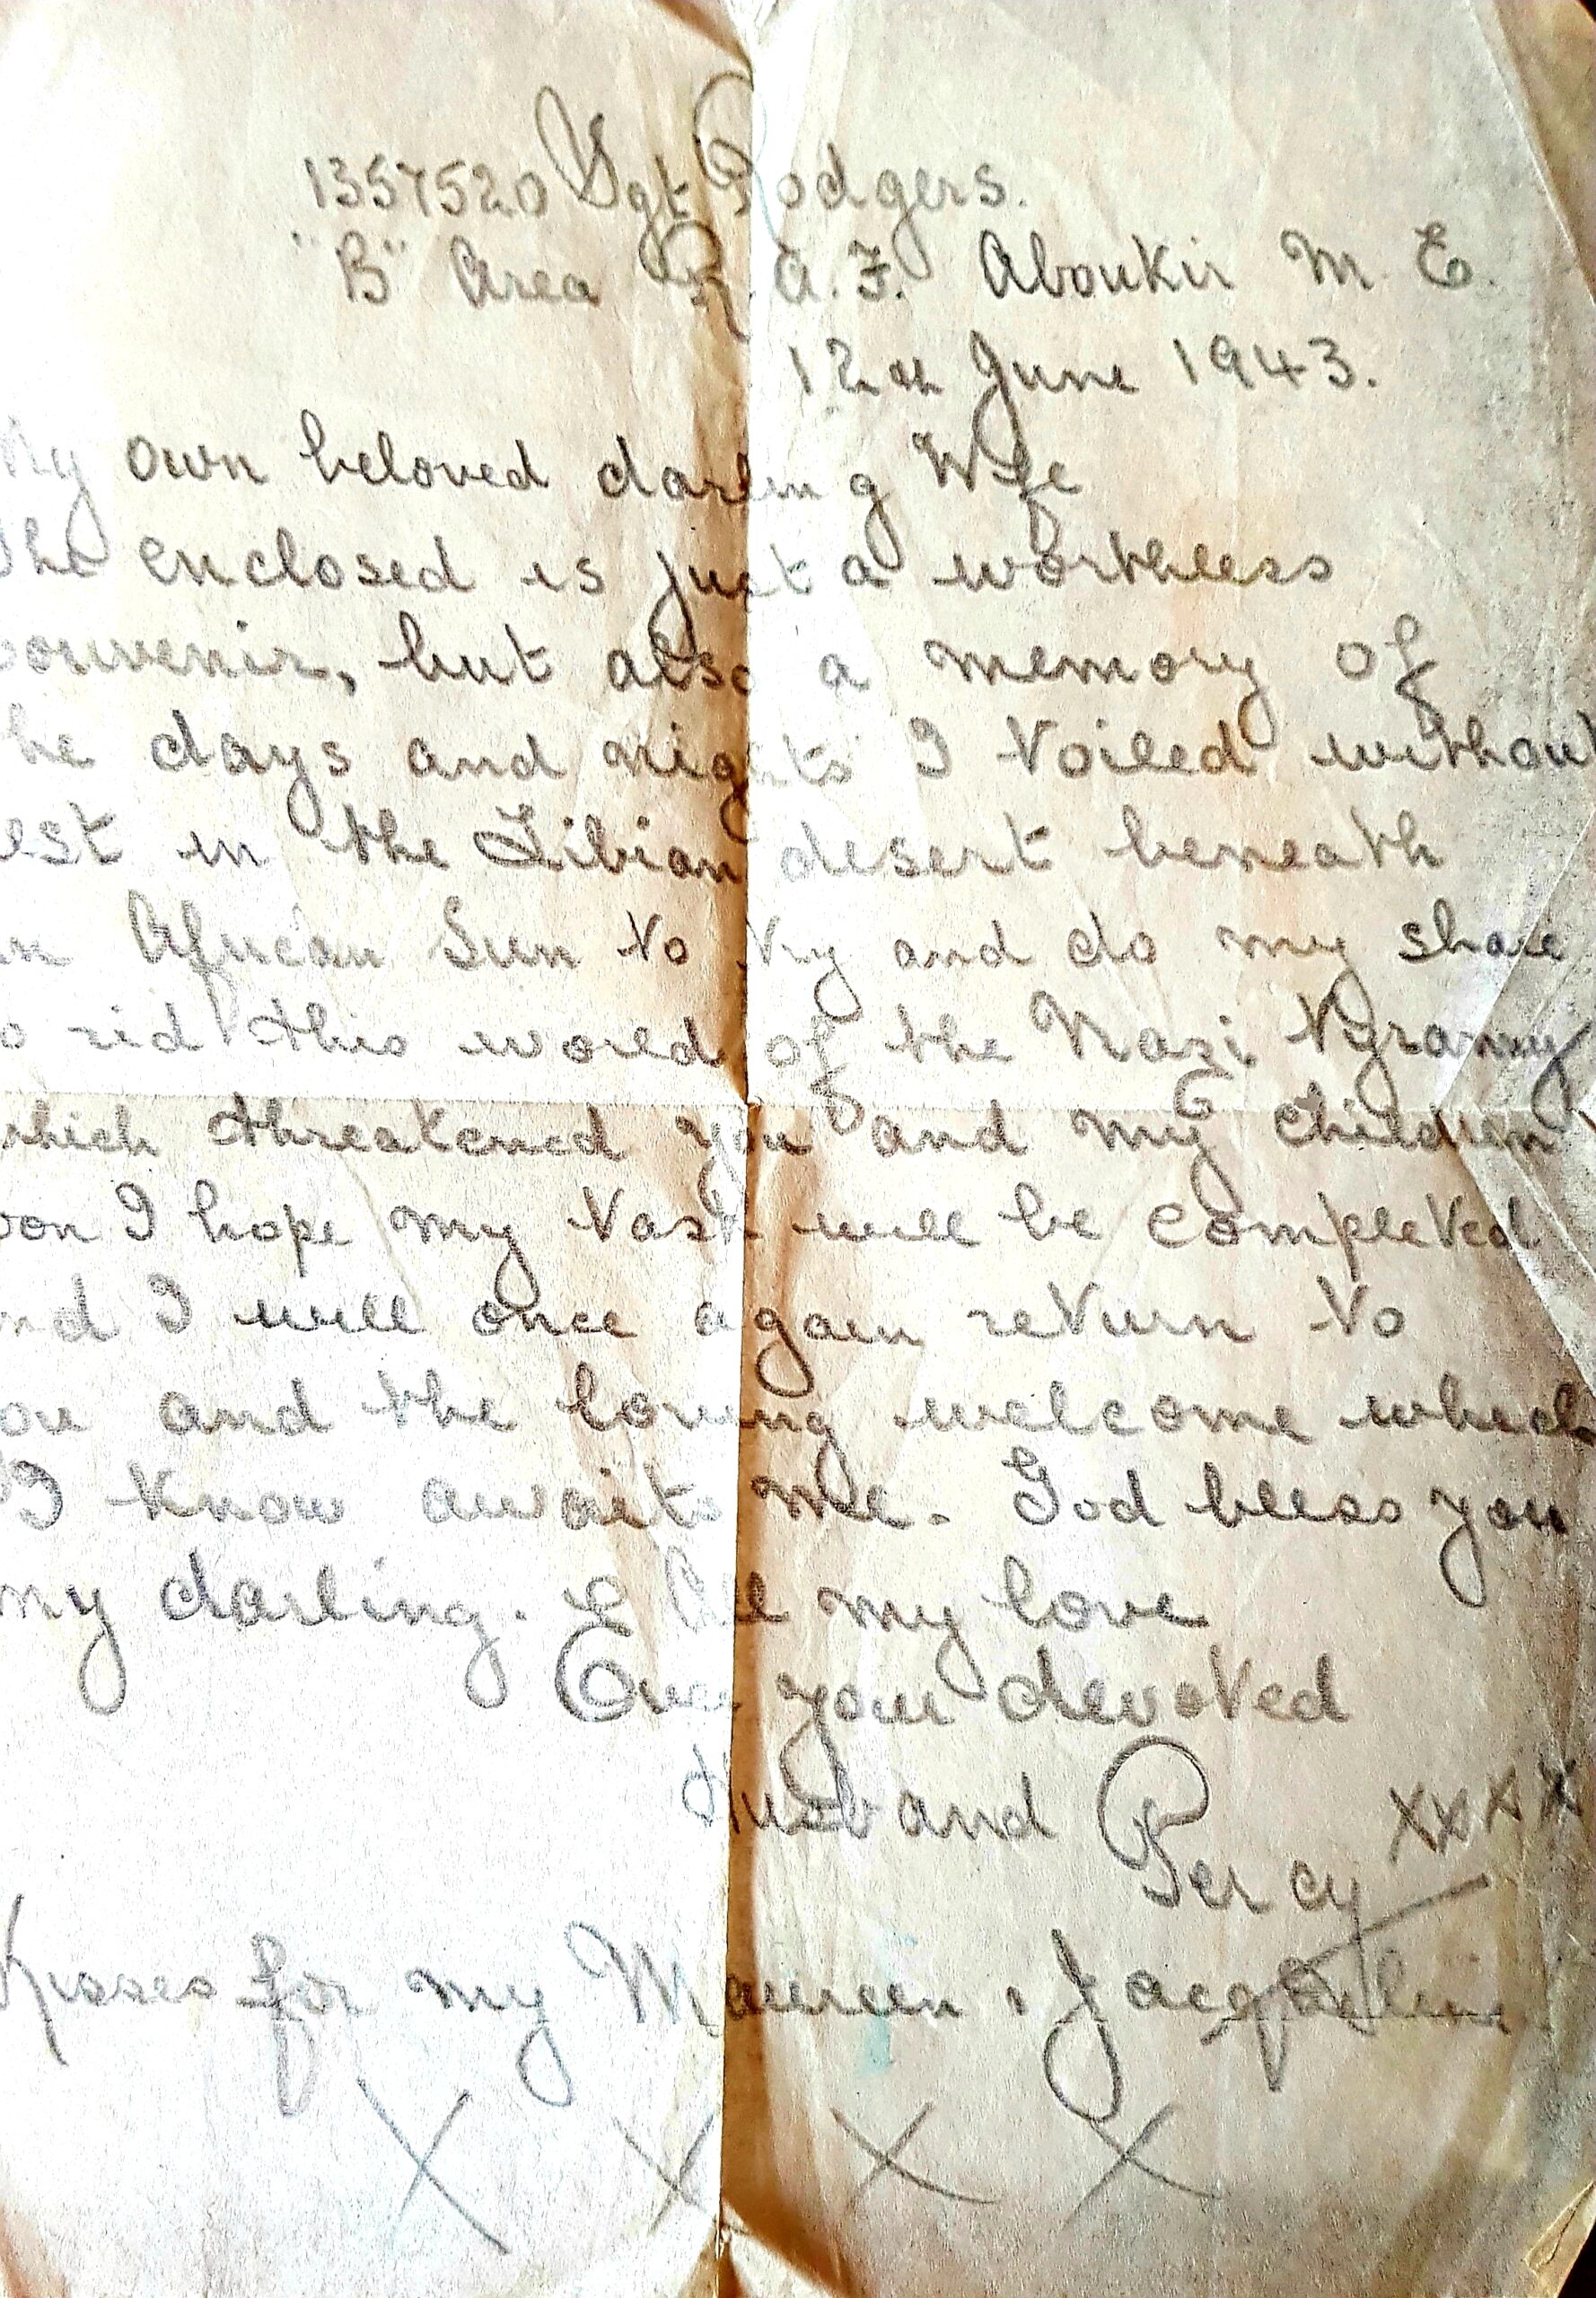 1357520 Sgt Rodgers.
"B" Area R.A.F. Aboukir M. E.
12th June 1943.
My own beloved darling Wife
The enclosed is just a worthless
souvenir, but also a memory of
he days and nights I toiled without
est in the Libian desert beneath
an African Sun to try and do my share
o rid this world of the Nazi tyranny
which threatened you and my children
oon I hope my task will be completed
nd I will once again return to
ou and the loving welcome which
I know awaits me. God bless you
my darling. All my love
Ever your devoted
Husband Percy xxxx
Kisses for my Maureen & Jacqueline
X X X X